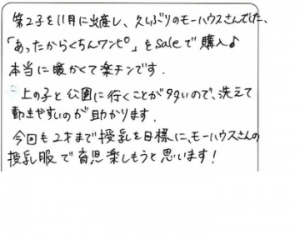 第2子を11月に出産し、久しぶりのモーハウスさんでした、
「あったからくちんワンピ」をsaleで購入♪
本当に暖かくて楽チンです.
上の子と公園に行くことが多いので、洗えて
動きやすいのが助かります.
今回も2才まで授乳を目標に、モーハウスさんの
授乳服で育児楽しもうと思います!